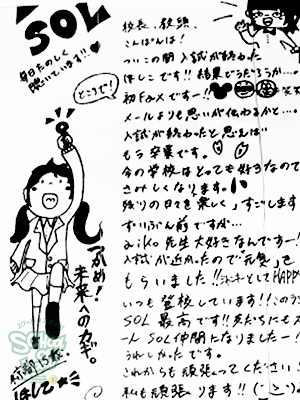 SOL
毎日たのしく
聴いています!!
校長、教頭
こんばんは!
ついこの間 入試が終わった
ほしこです!! 結果どうだろうか…。
初Faxですー!!
笑
メールよりも思いが伝わるかと…。
入試が終わったと思えば
もう卒業です。
今の学校はとっても好きなので
さみしくなります。
残りの日々を楽しくすごします
ずいぶん前ですが…
aiko先生大好きなんですー!
入試が近かったので「元気」を
もらいました!!
HAPPY
いつも登校しています!!
SOL 最高です!!
SOL仲間になりましたー!
うれしかったです。
これからも頑張ってください!
私も頑張ります!!
ところで!
つかめ!
未来へのカギ。
ほしこ